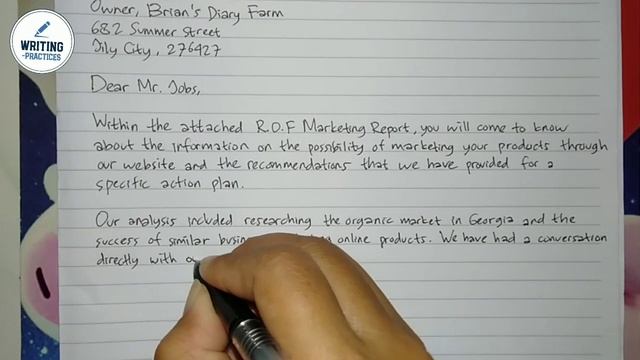 WRITING
-PRACTICES
Owner, Brian's Diary Farm
682 Summer Street
Jily City, 276427
Dear Mr. Jobs,
Within the attached R.O.F Marketing Report, you will come to know
about the information on the possibility of marketing your products through
our website and the recommendations that we have provided for a
specific action plan.
Our analysis included researching the organic market in Georgia and the
success of similar online products. We have had a conversation
directly with